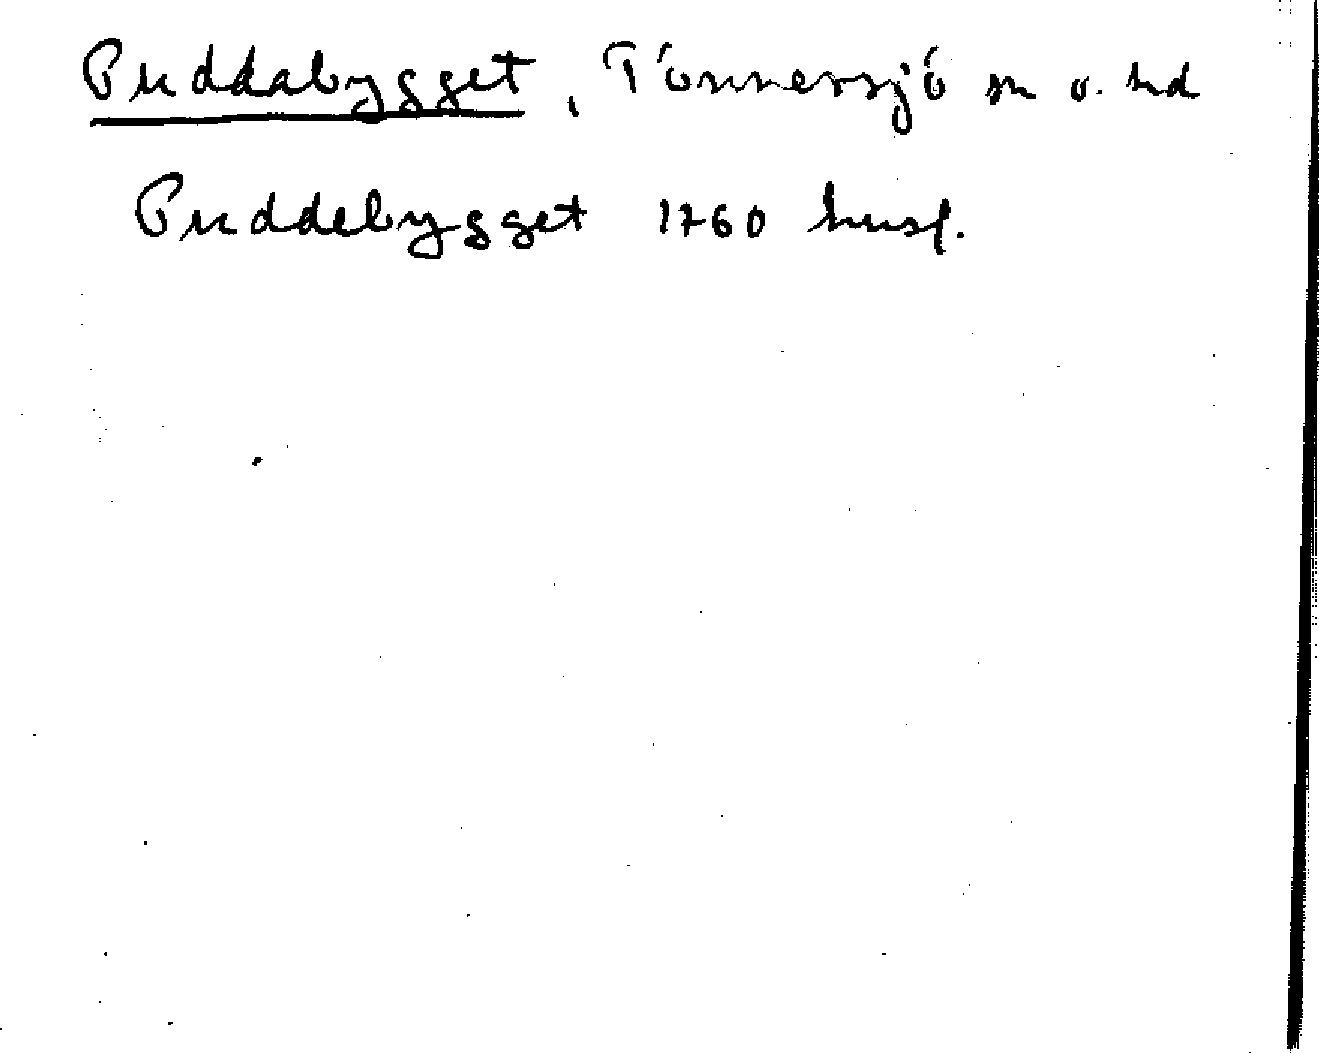 Puddabygget, Tönnersjö sn o. hd
Puddebygget 1760 husf.